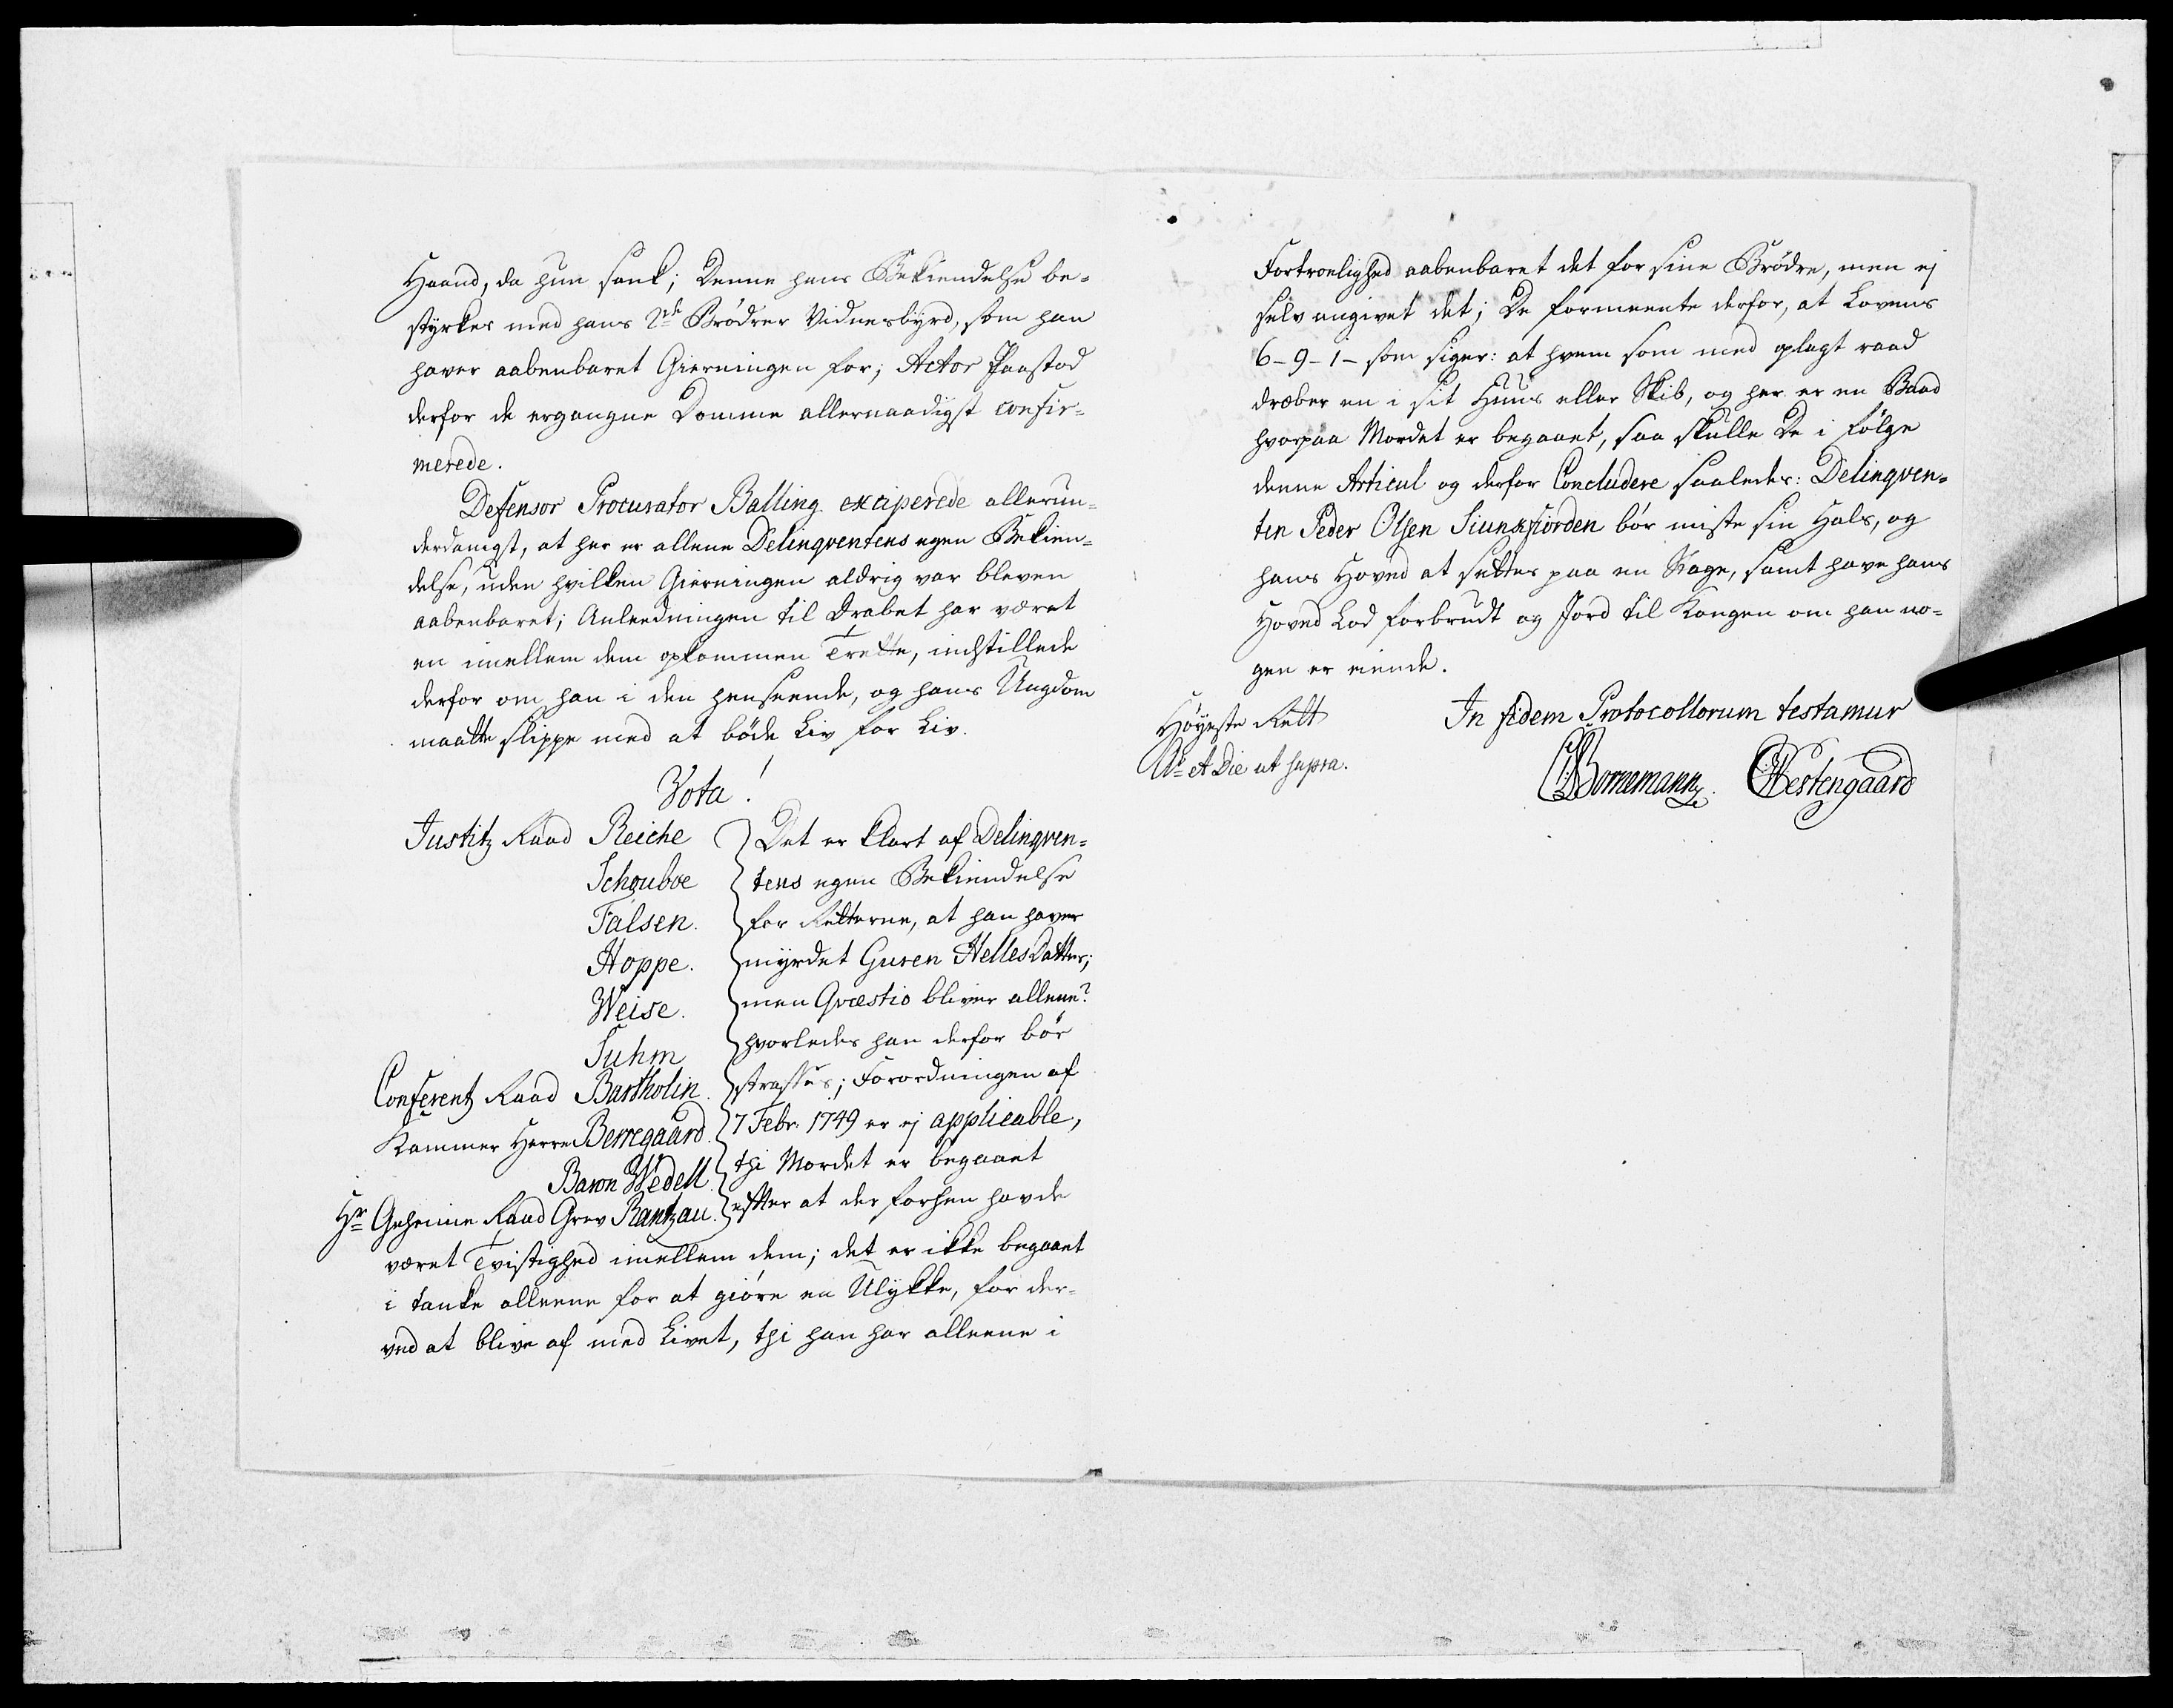 Haand, da hun sank; Denne hans Bekiendelse be-
styrkes med hans 2de Brödrer Vidnesbyrd, som han
haver aabenbaret Gierningen for; Actor Paastod
derfor de ergangne Domme allernaadigst confir-
merede.
Defensor Procurator Balling exciperede allerun-
derdanigst, at her er allene Delinqventens egen Bekien-
delse, uden hvilken Gierningen aldrig var bleven
aabenbaret; Anleedningen til Drabet har været
en imellem dem opkommen Trette, indstillede
derfor om han i den henseende, og hans Ungdom
maatte slippe med at böde Liv for Liv.
Vota!
Justitz Raad Reiche
Schouboe
Falsen.
Hoppe.
Weise.
Suhm
Conferentz Raad Bartholin.
Kammer Herre Berregaard.
Baron Wedell.
Hr Geheime Raad Grev Rantzau.
Det er klart af Delinqven-
tens egen Bekiendelse
for Retterne, at han haver
myrdet Guren HellesDatter;
men Qvæstio bliver allene?
hvorledes han derfor bör
straffes; Forordningen af
7 Febr. 1749 er ej applicable,
thi Mordet er begaaet
effter at der forhen havde
været Tvistighed imellem dem; det er ikke begaaet
i tanke alleene for at giöre en Ulykke, for der-
ved at blive af med Livet, thi han har alleene i
Fortroelighed aabenbaret det for sine Brödre, men ej
selv angivet det; De formeente derfor, at Lovens
6-9-1- som siger: at hvem som med oplagt raad
dræber en i sit Huus eller Skib, og her er en Baad
hvorpaa Mordet er begaaet, saa skulle De i fölge
denne Articul og derfor Concludere saaledes: Delinqven-
ten Peder Olsen Siunsfiorden bör miste sin Hals, og
hans Hoved at settes paa en Stage, samt have hans
Hoved Lod forbrudt og Jord til Kongen om han no-
gen er eiende.
In fidem Protocollorum testamur
Höyeste Rett
Ao et Die ut supra.
Bornemann. Westengaard